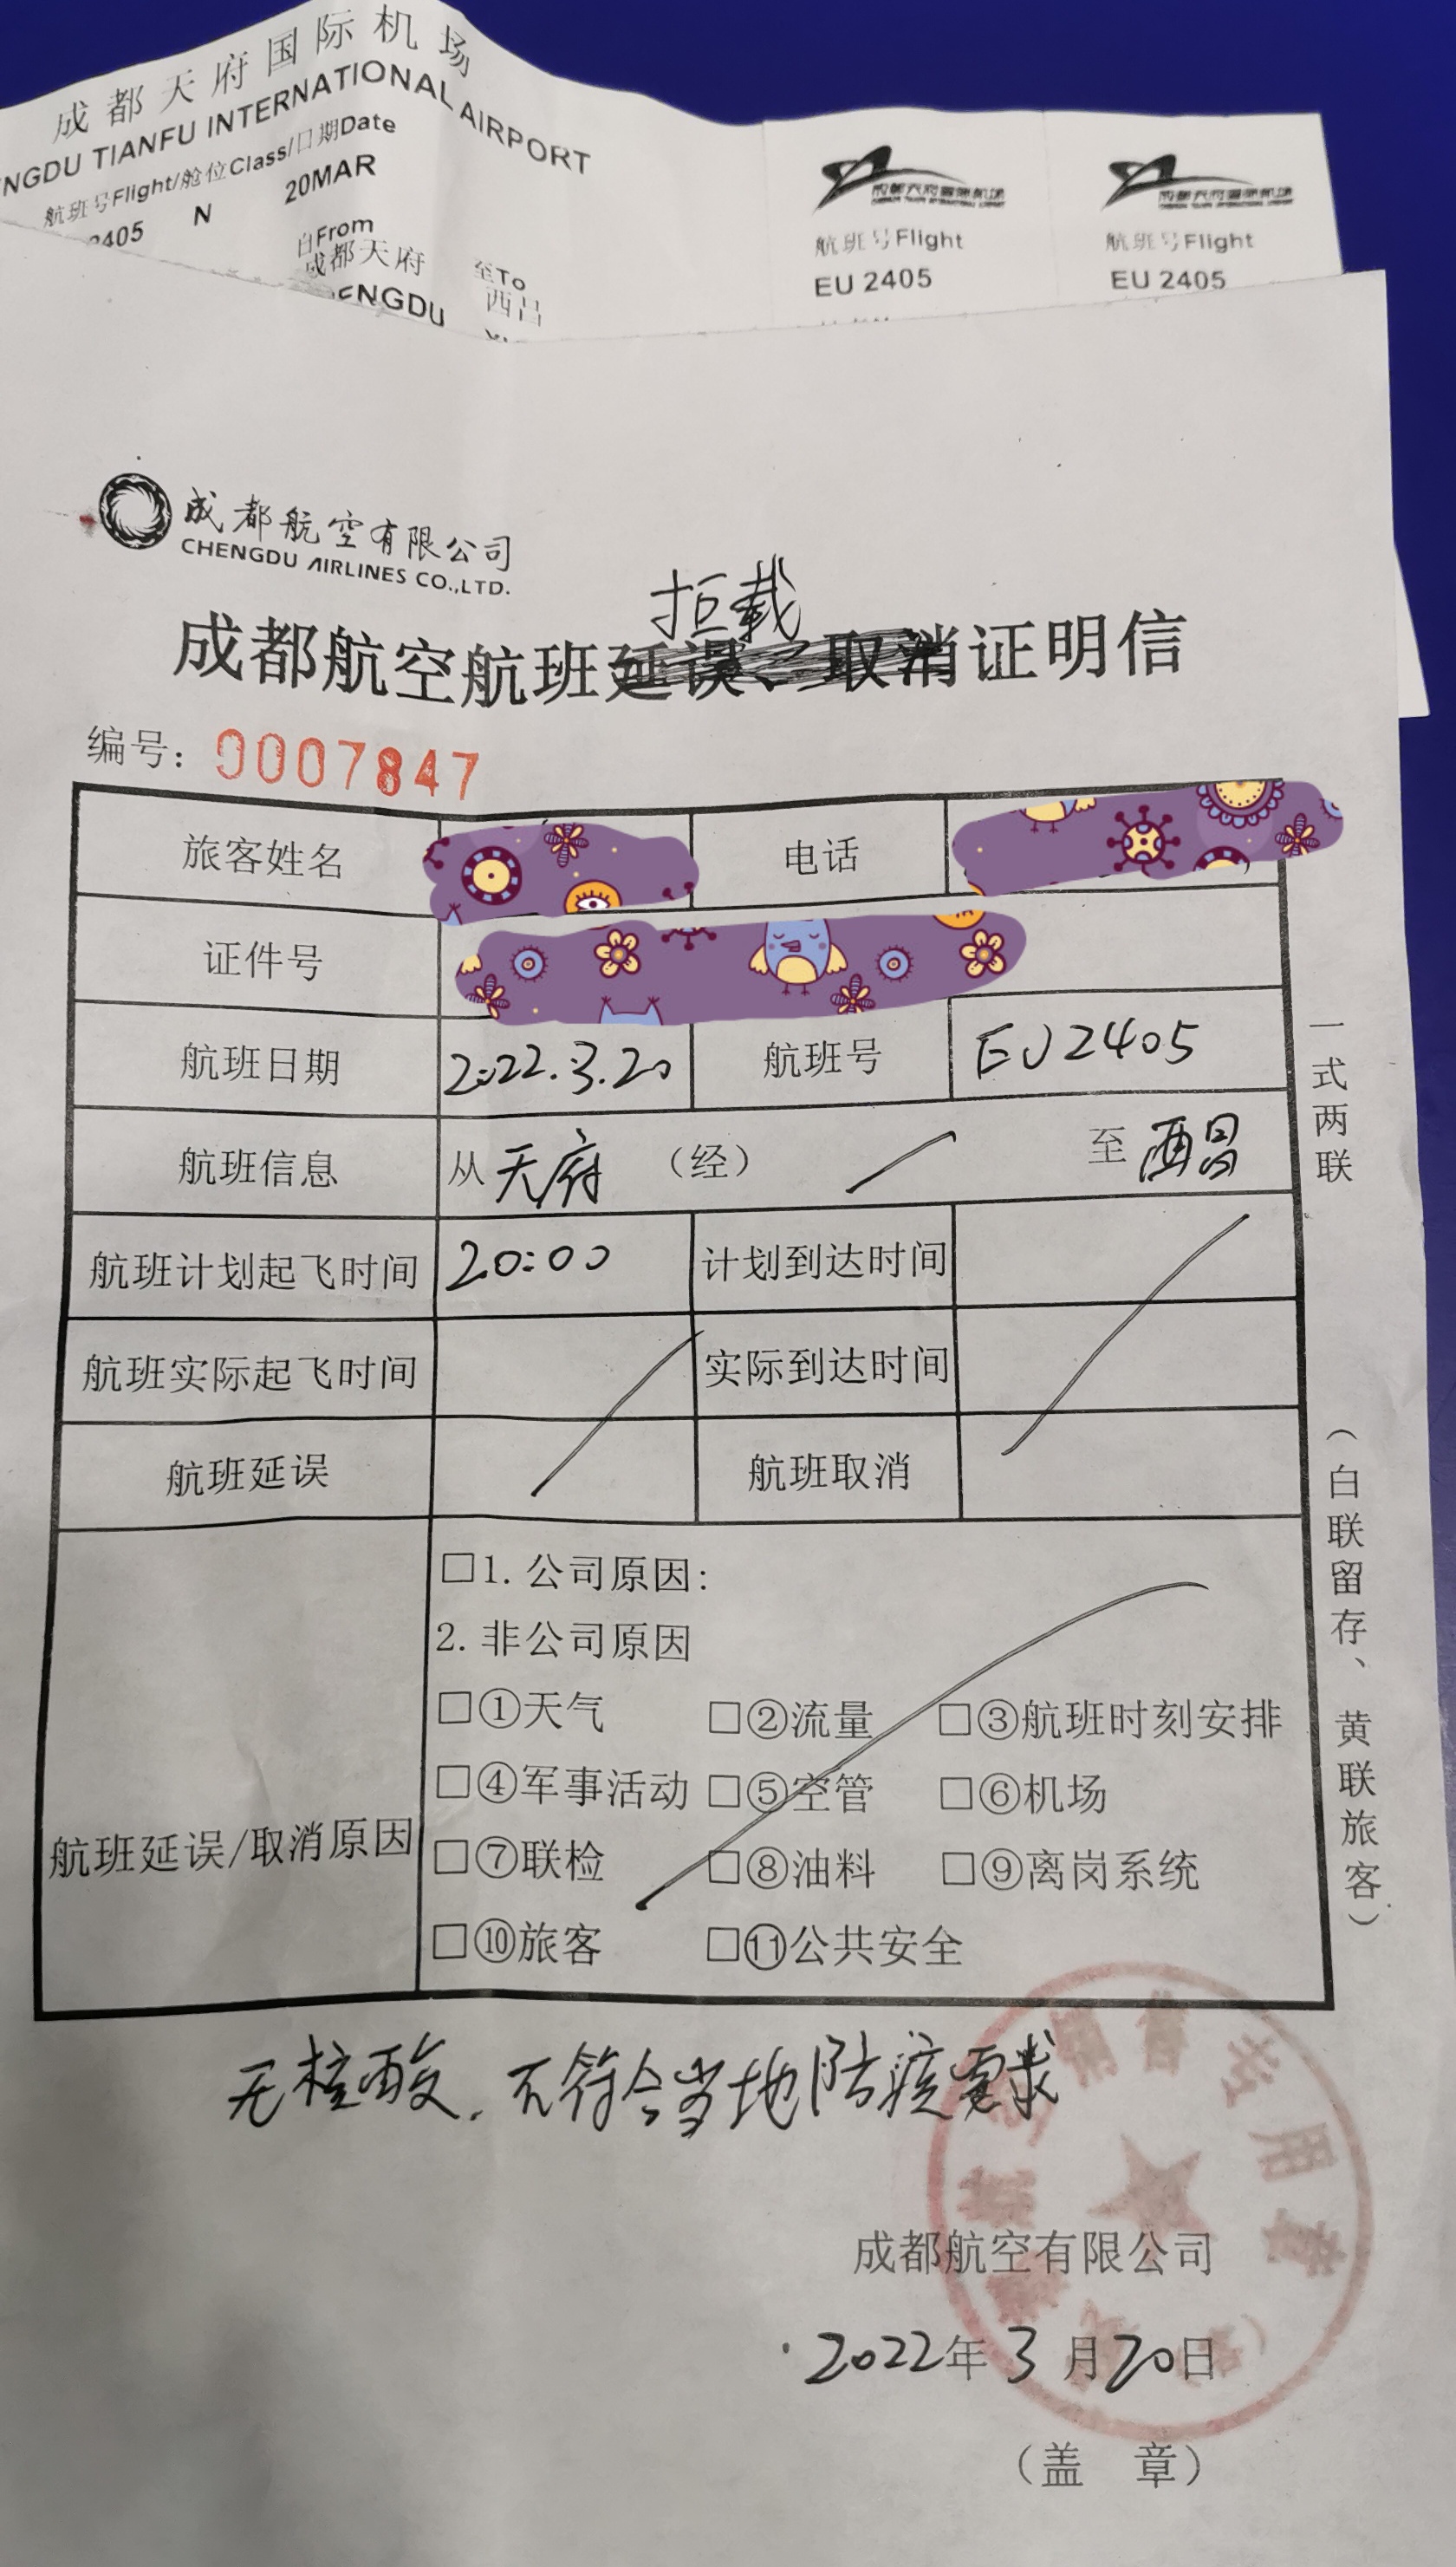 成都天府国际机场
NGDU TIANFU INTERNATIONAL AIRPORT
航班号Flight/舱位Class/日期Date
2405 N 20MAR
自From 至To
成都天府 西昌
ENGDU
成都天府国际机场
航班号Flight
EU 2405
成都天府国际机场
航班号Flight
EU 2405
成都航空有限公司
CHENGDU AIRLINES CO.,LTD.
拒载
成都航空航班延误、取消证明信
编号: 0007847
旅客姓名 电话
证件号
航班日期 2022.3.20 航班号 EU2405
航班信息 从 天府 (经) 至 西昌
航班计划起飞时间 20:00 计划到达时间
航班实际起飞时间 实际到达时间
航班延误 航班取消
航班延误/取消原因
□1. 公司原因:
2. 非公司原因
□①天气 □②流量 □③航班时刻安排
□④军事活动 □⑤空管 □⑥机场
□⑦联检 □⑧油料 □⑨离岗系统
□⑩旅客 □⑪公共安全
一式两联
(白联留存、黄联旅客)
无核酸, 不符合当地防疫要求
成都航空有限公司
2022年3月20日
(盖 章)
专用章